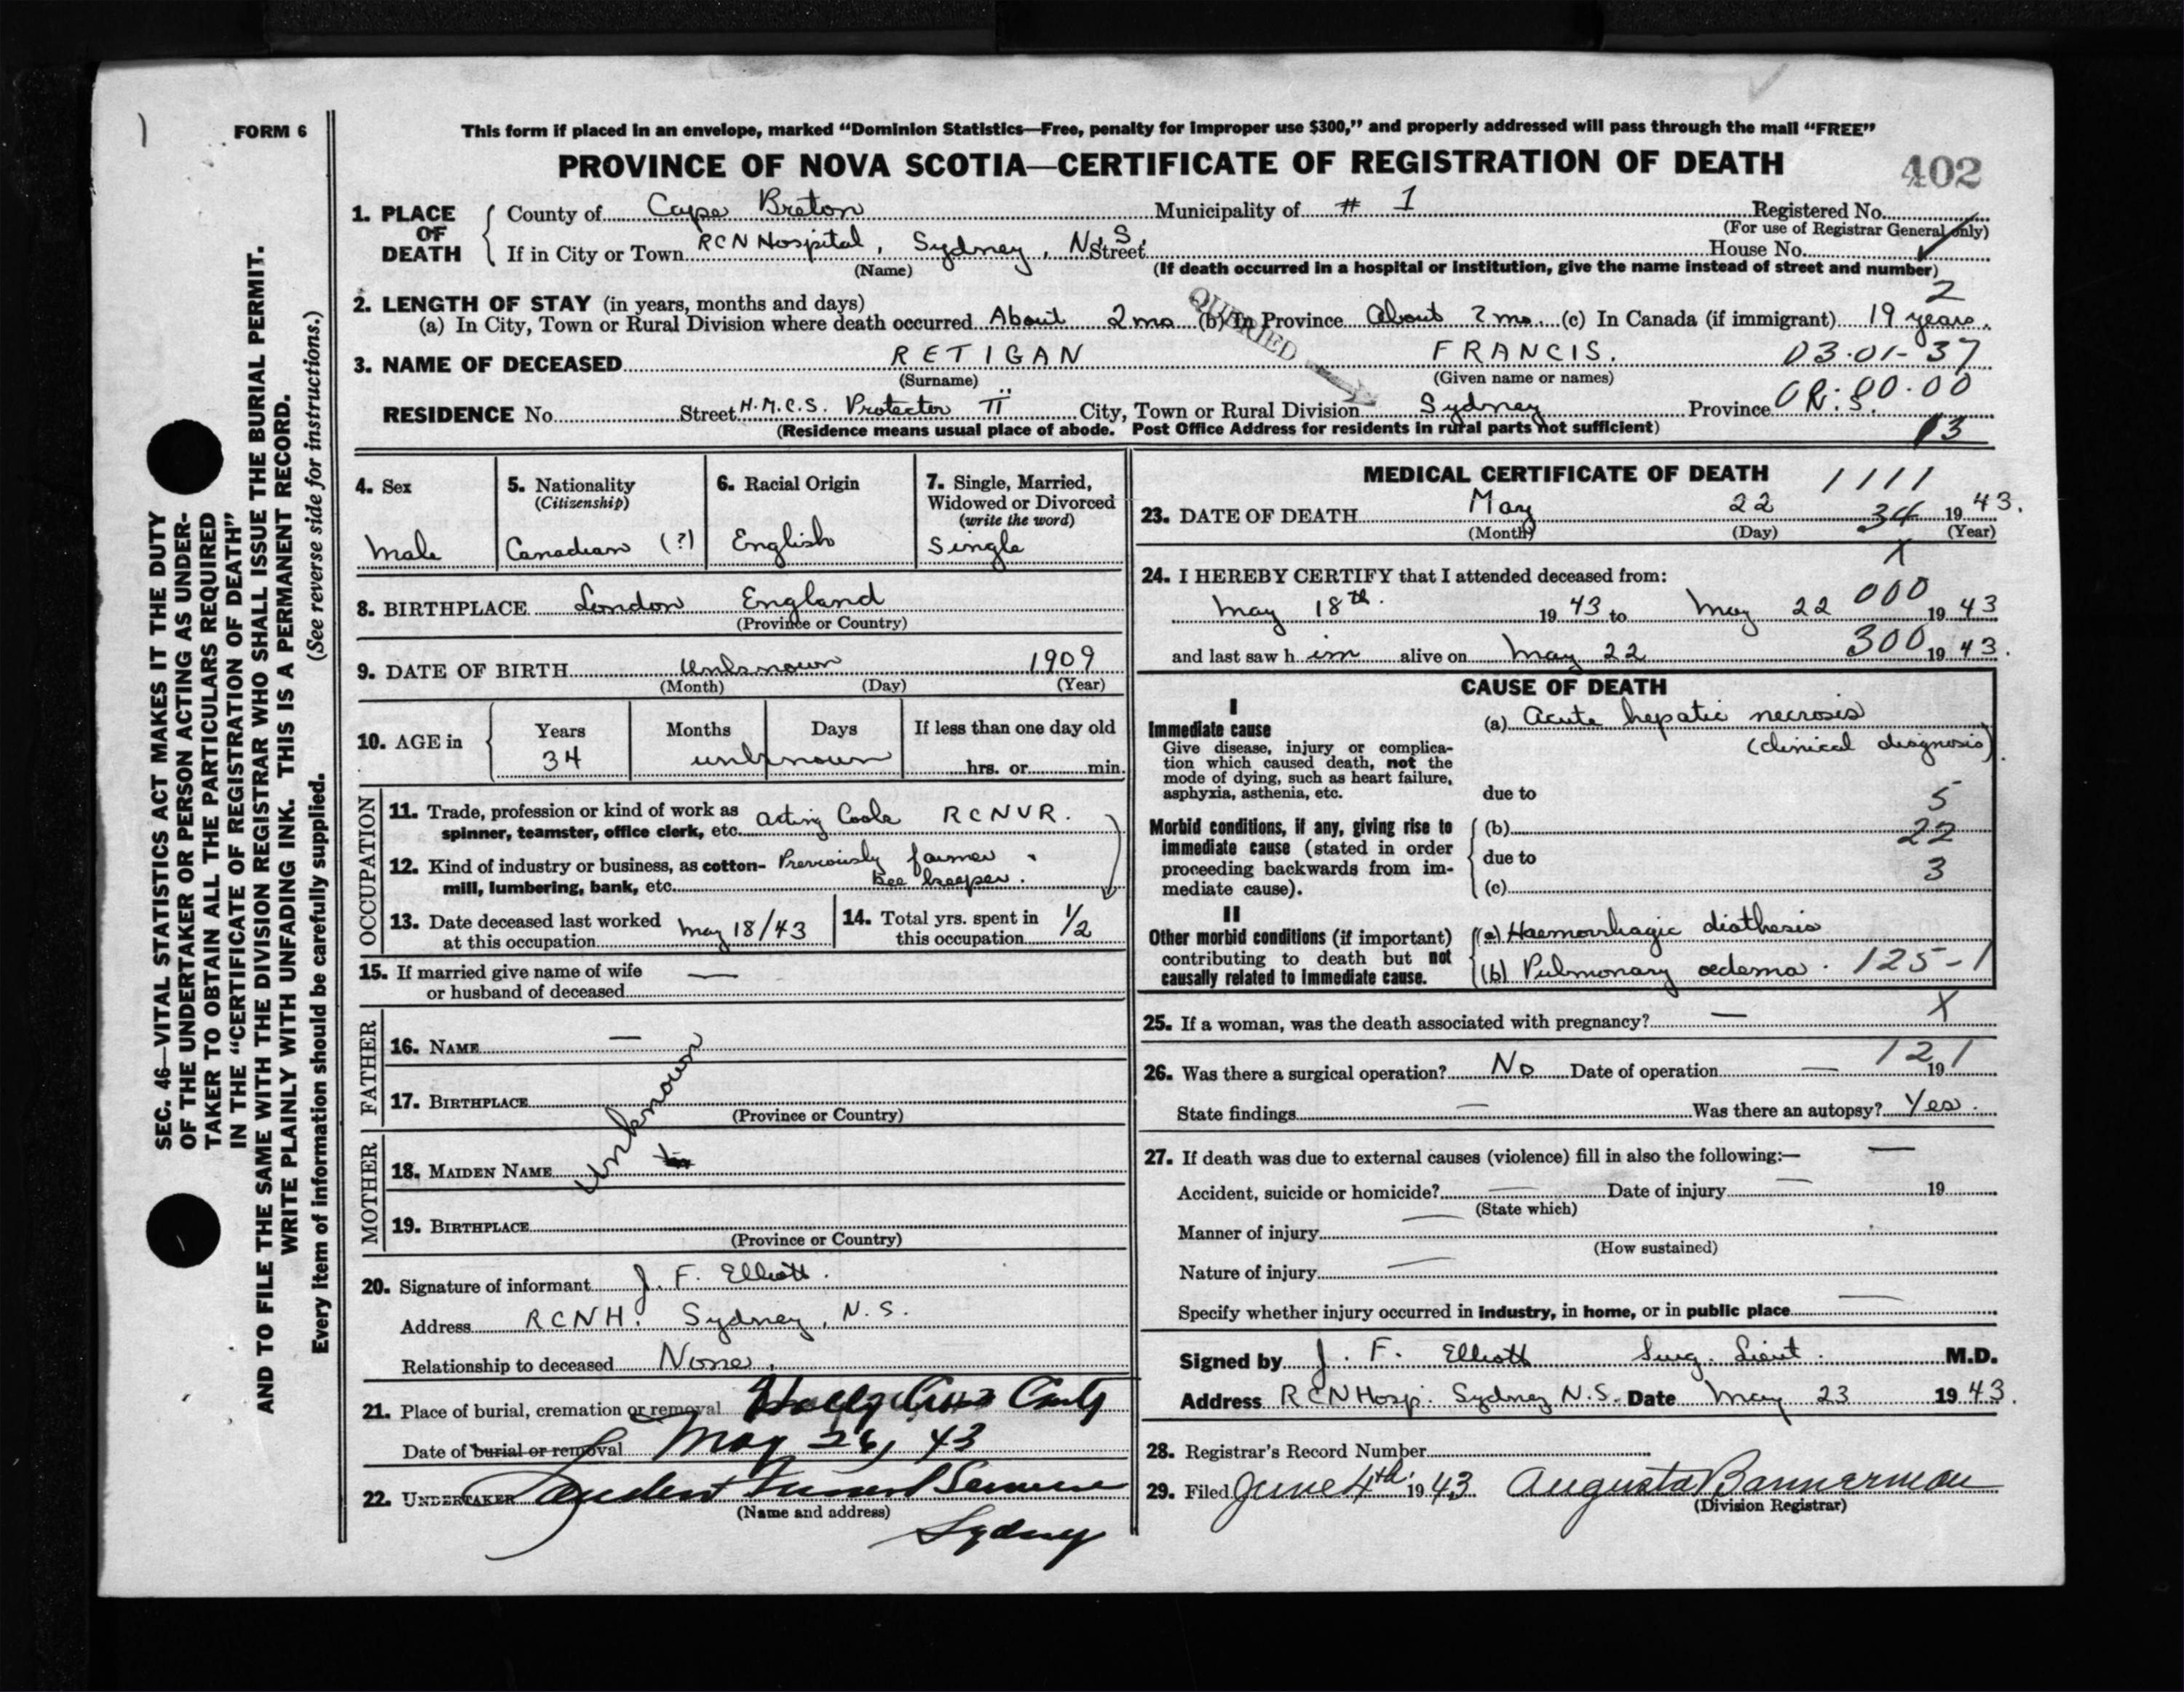 FORM 6
This form if placed in an envelope, marked “Dominion Statistics—Free, penalty for improper use $300,” and properly addressed will pass through the mail “FREE”
PROVINCE OF NOVA SCOTIA—CERTIFICATE OF REGISTRATION OF DEATH
402
1. PLACE OF DEATH
County of Cape Breton Municipality of # 1 Registered No.
(For use of Registrar General only)
If in City or Town RCN Hospital, Sydney, N.S. Street House No.
(Name) (If death occurred in a hospital or institution, give the name instead of street and number)
2. LENGTH OF STAY (in years, months and days) 2
(a) In City, Town or Rural Division where death occurred About 2 mo (b) In Province About 2 mo. (c) In Canada (if immigrant) 19 years.
QUERIED
3. NAME OF DECEASED RETIGAN FRANCIS. 03-01-37
(Surname) (Given name or names)
RESIDENCE No. Street H.M.C.S. Protector II City, Town or Rural Division Sydney Province
00.00
(Residence means usual place of abode. Post Office Address for residents in rural parts not sufficient) 13
4. Sex
Male
5. Nationality
(Citizenship)
Canadian (?)
6. Racial Origin
English
7. Single, Married,
Widowed or Divorced
(write the word)
Single
8. BIRTHPLACE London England
(Province or Country)
9. DATE OF BIRTH Unknown 1909
(Month) (Day) (Year)
10. AGE in Years Months Days If less than one day old
34 unknown hrs. or min.
OCCUPATION
11. Trade, profession or kind of work as
spinner, teamster, office clerk, etc. Acting Cook RCNVR.
12. Kind of industry or business, as cotton-
mill, lumbering, bank, etc. Previously farmer
Bee keeper.
13. Date deceased last worked
at this occupation May 18/43
14. Total yrs. spent in
this occupation 1/2
15. If married give name of wife
or husband of deceased —
FATHER
16. NAME —
17. BIRTHPLACE
(Province or Country)
unknown
MOTHER
18. MAIDEN NAME
19. BIRTHPLACE
(Province or Country)
20. Signature of informant J. F. Elliott.
Address RCNH. Sydney, N.S.
Relationship to deceased None.
21. Place of burial, cremation or removal Holy Cross
Date of burial or removal May 26, 43
22. UNDERTAKER Funeral Service
(Name and address)
Sydney
MEDICAL CERTIFICATE OF DEATH
1111
23. DATE OF DEATH May 22 34 1943.
(Month) (Day) (Year)
X
24. I HEREBY CERTIFY that I attended deceased from:
000
May 18th. 1943 to May 22 1943
and last saw him alive on May 22 300 1943.
CAUSE OF DEATH
I
Immediate cause
Give disease, injury or complica-
tion which caused death, not the
mode of dying, such as heart failure,
asphyxia, asthenia, etc.
(a) Acute hepatic necrosis
(clinical diagnosis).
due to 5
Morbid conditions, if any, giving rise to
immediate cause (stated in order
proceeding backwards from im-
mediate cause).
(b) 22
due to 3
(c)
II
Other morbid conditions (if important)
contributing to death but not
causally related to immediate cause.
(a) Haemorrhagic diathesis
(b) Pulmonary oedema. 125-1
25. If a woman, was the death associated with pregnancy? — X
26. Was there a surgical operation? No Date of operation — 19
121
State findings — Was there an autopsy? Yes.
27. If death was due to external causes (violence) fill in also the following:— —
Accident, suicide or homicide? — Date of injury — 19
(State which)
Manner of injury —
(How sustained)
Nature of injury —
Specify whether injury occurred in industry, in home, or in public place —
Signed by J. F. Elliott Surg. Lieut. M.D.
Address RCN Hosp. Sydney N.S. Date May 23 1943.
28. Registrar's Record Number
29. Filed June 4th. 1943 Augusta Bannerman
(Division Registrar)
SEC. 46—VITAL STATISTICS ACT MAKES IT THE DUTY
OF THE UNDERTAKER OR PERSON ACTING AS UNDER-
TAKER TO OBTAIN ALL THE PARTICULARS REQUIRED
IN THE “CERTIFICATE OF REGISTRATION OF DEATH”
AND TO FILE THE SAME WITH THE DIVISION REGISTRAR WHO SHALL ISSUE THE BURIAL PERMIT.
WRITE PLAINLY WITH UNFADING INK. THIS IS A PERMANENT RECORD.
Every item of information should be carefully supplied. (See reverse side for instructions.)